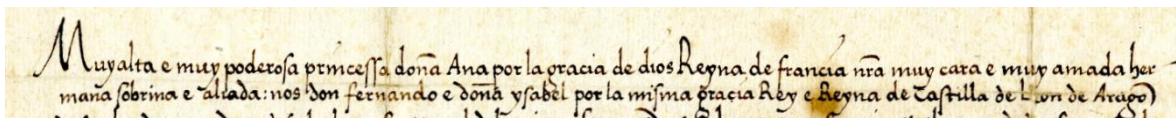 Muy alta e muy poderosa princessa doña Ana por la gracia de dios Reyna de francia nr̃a muy cara e muy amada her
mana sobrina e aliada: nos don fernando e doña ysabel por la misma gracia Rey e Reyna de Castilla de leon de Aragoñ